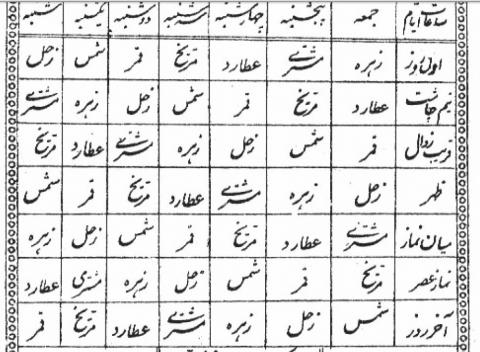 ساعات ایام جمعہ پنجشنبہ چہارشنبہ سہ شنبہ دوشنبہ یکشنبہ شنبہ
اول روز زہرہ مشتری عطارد مریخ قمر شمس زحل
نیم چاشت عطارد مریخ قمر شمس زحل زہرہ مشتری
قریب زوال قمر شمس زحل زہرہ مشتری عطارد مریخ
ظہر زحل زہرہ مشتری عطارد مریخ قمر شمس
میان نماز مشتری عطارد مریخ قمر شمس زحل زہرہ
نماز عصر مریخ قمر شمس زحل زہرہ مشتری عطارد
آخر روز شمس زحل زہرہ مشتری عطارد مریخ قمر